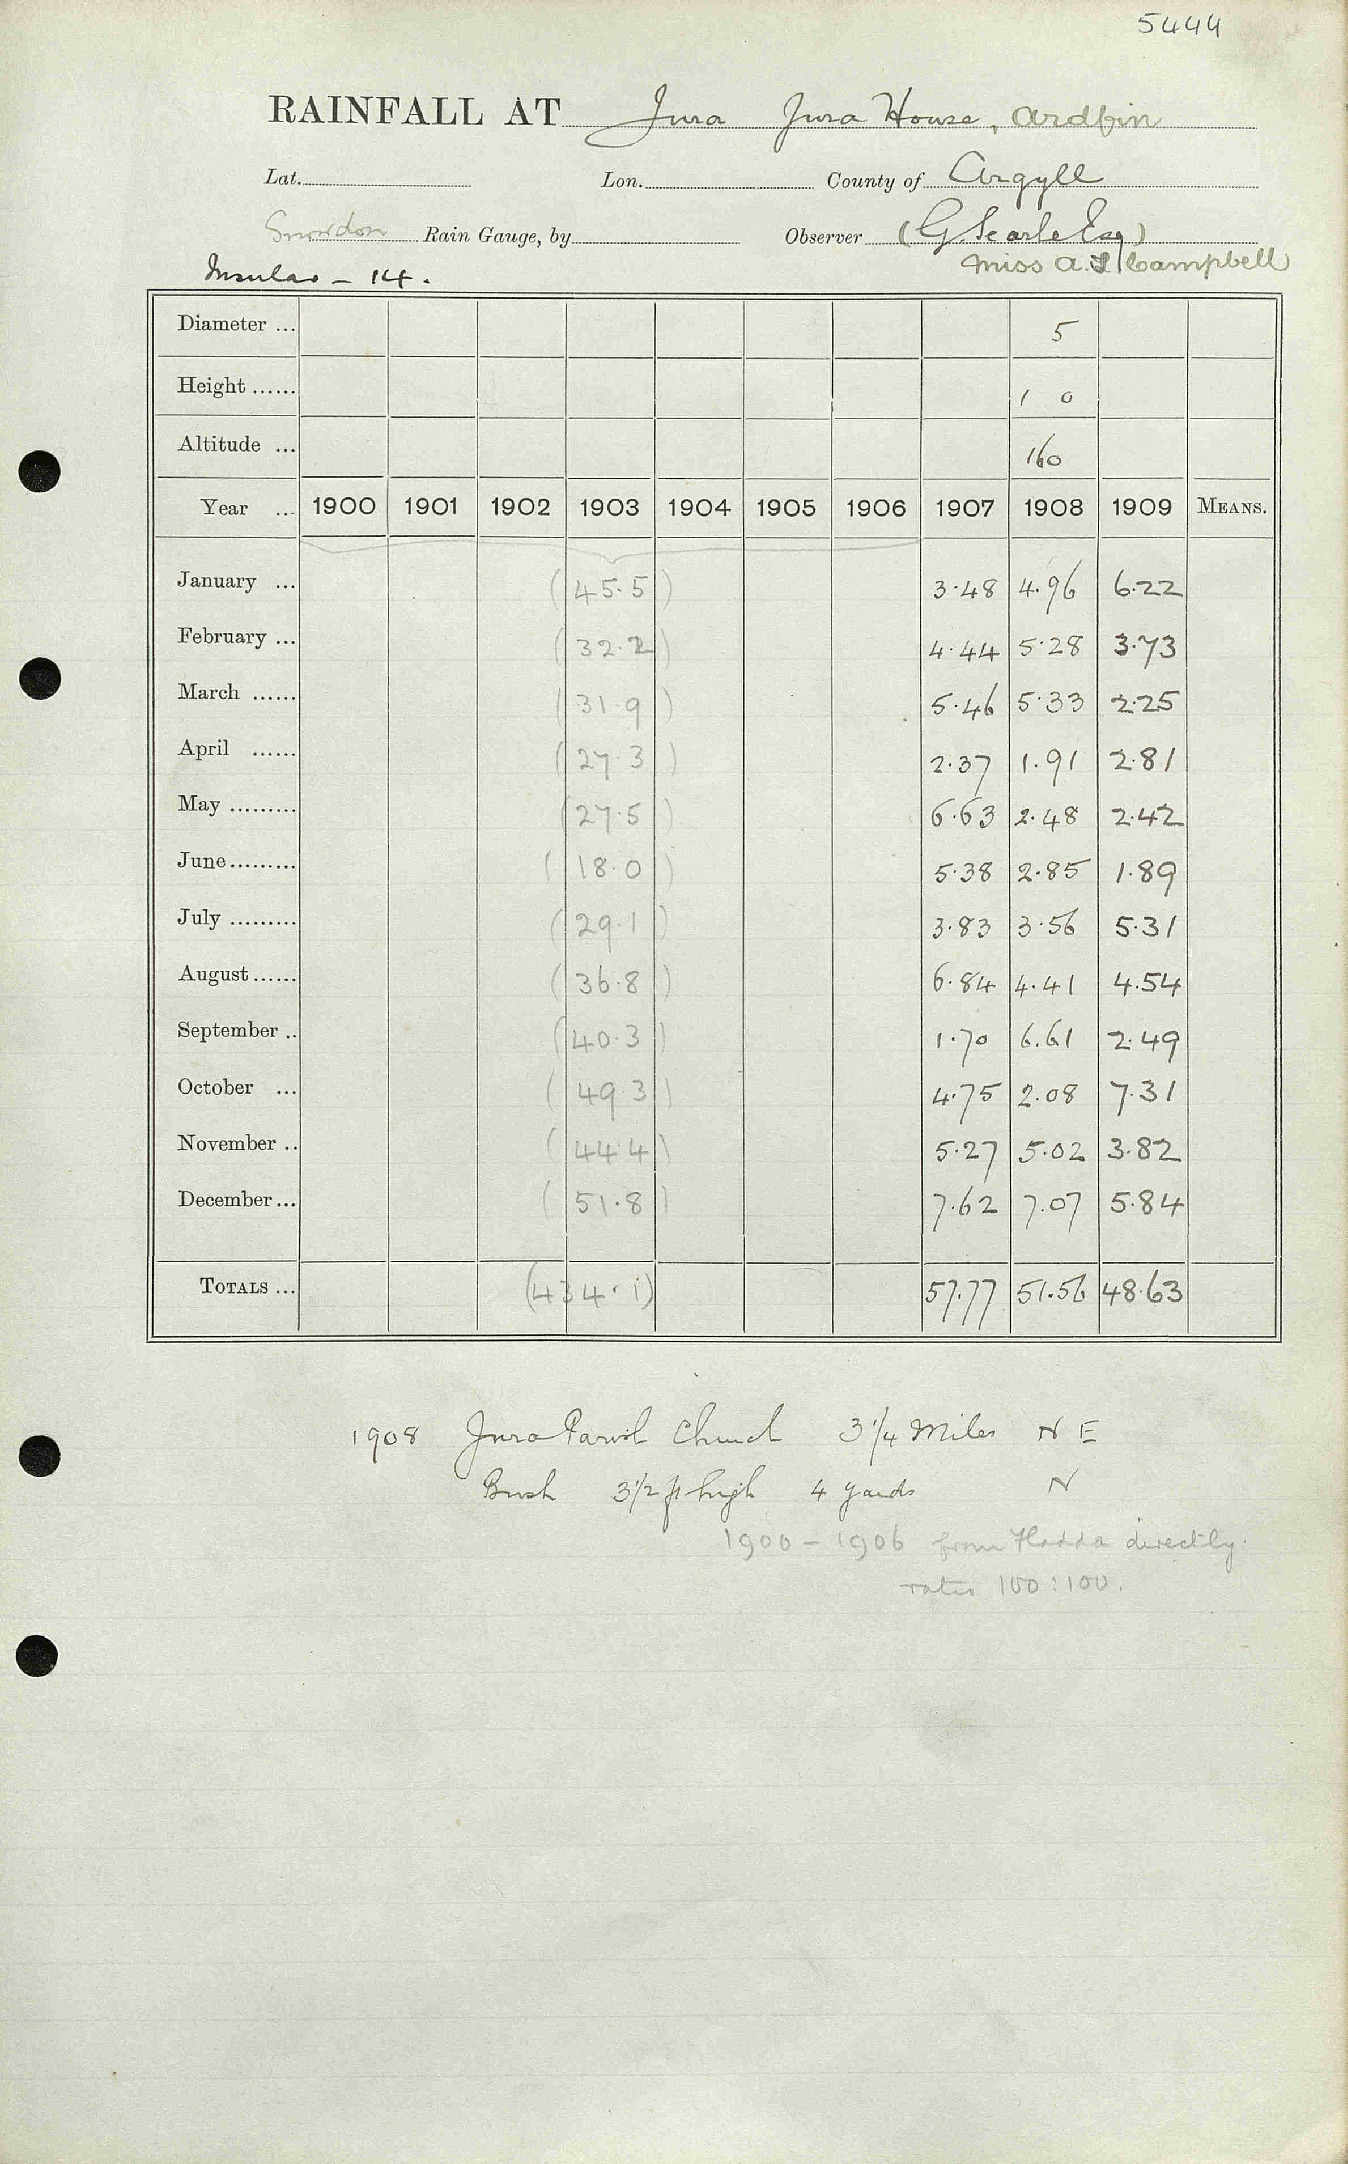 5444
RAINFALL AT Jura Jura House, Ardfin
Lat. Lon. County of Argyll
Snowdon Rain Gauge, by Observer (G. Searle Esq)
Insular - 14. Miss A. I Campbell
Diameter ... 5
Height ...... 1 0
Altitude ... 160
Year ... 1900 1901 1902 1903 1904 1905 1906 1907 1908 1909 MEANS.
January ... (45.5) 3.48 4.96 6.22
February ... (32.2) 4.44 5.28 3.73
March ...... (31.9) 5.46 5.33 2.25
April ...... (27.3) 2.37 1.91 2.81
May ......... (27.5) 6.63 2.48 2.42
June ......... (18.0) 5.38 2.85 1.89
July ......... (29.1) 3.83 3.56 5.31
August ...... (36.8) 6.84 4.41 4.54
September .. (40.3) 1.70 6.61 2.49
October ... (49.3) 4.75 2.08 7.31
November .. (44.4) 5.27 5.02 3.82
December ... (51.8) 7.62 7.07 5.84
TOTALS ... (434.1) 57.77 51.56 48.63
1908 Jura Parish Church 3 1/4 Miles N E
Bush 3 1/2 ft high 4 yards N
1900 - 1906 from Fladda directly.
ratio 100 : 100.